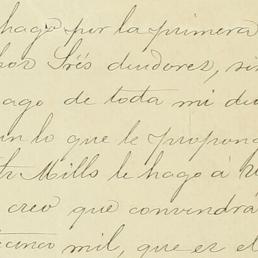 hago por la primera
Srés dudores, sin
ago de toda mi de
en lo que le propong
Mills le hago á
creo que convendrá
cinco mil, que es el